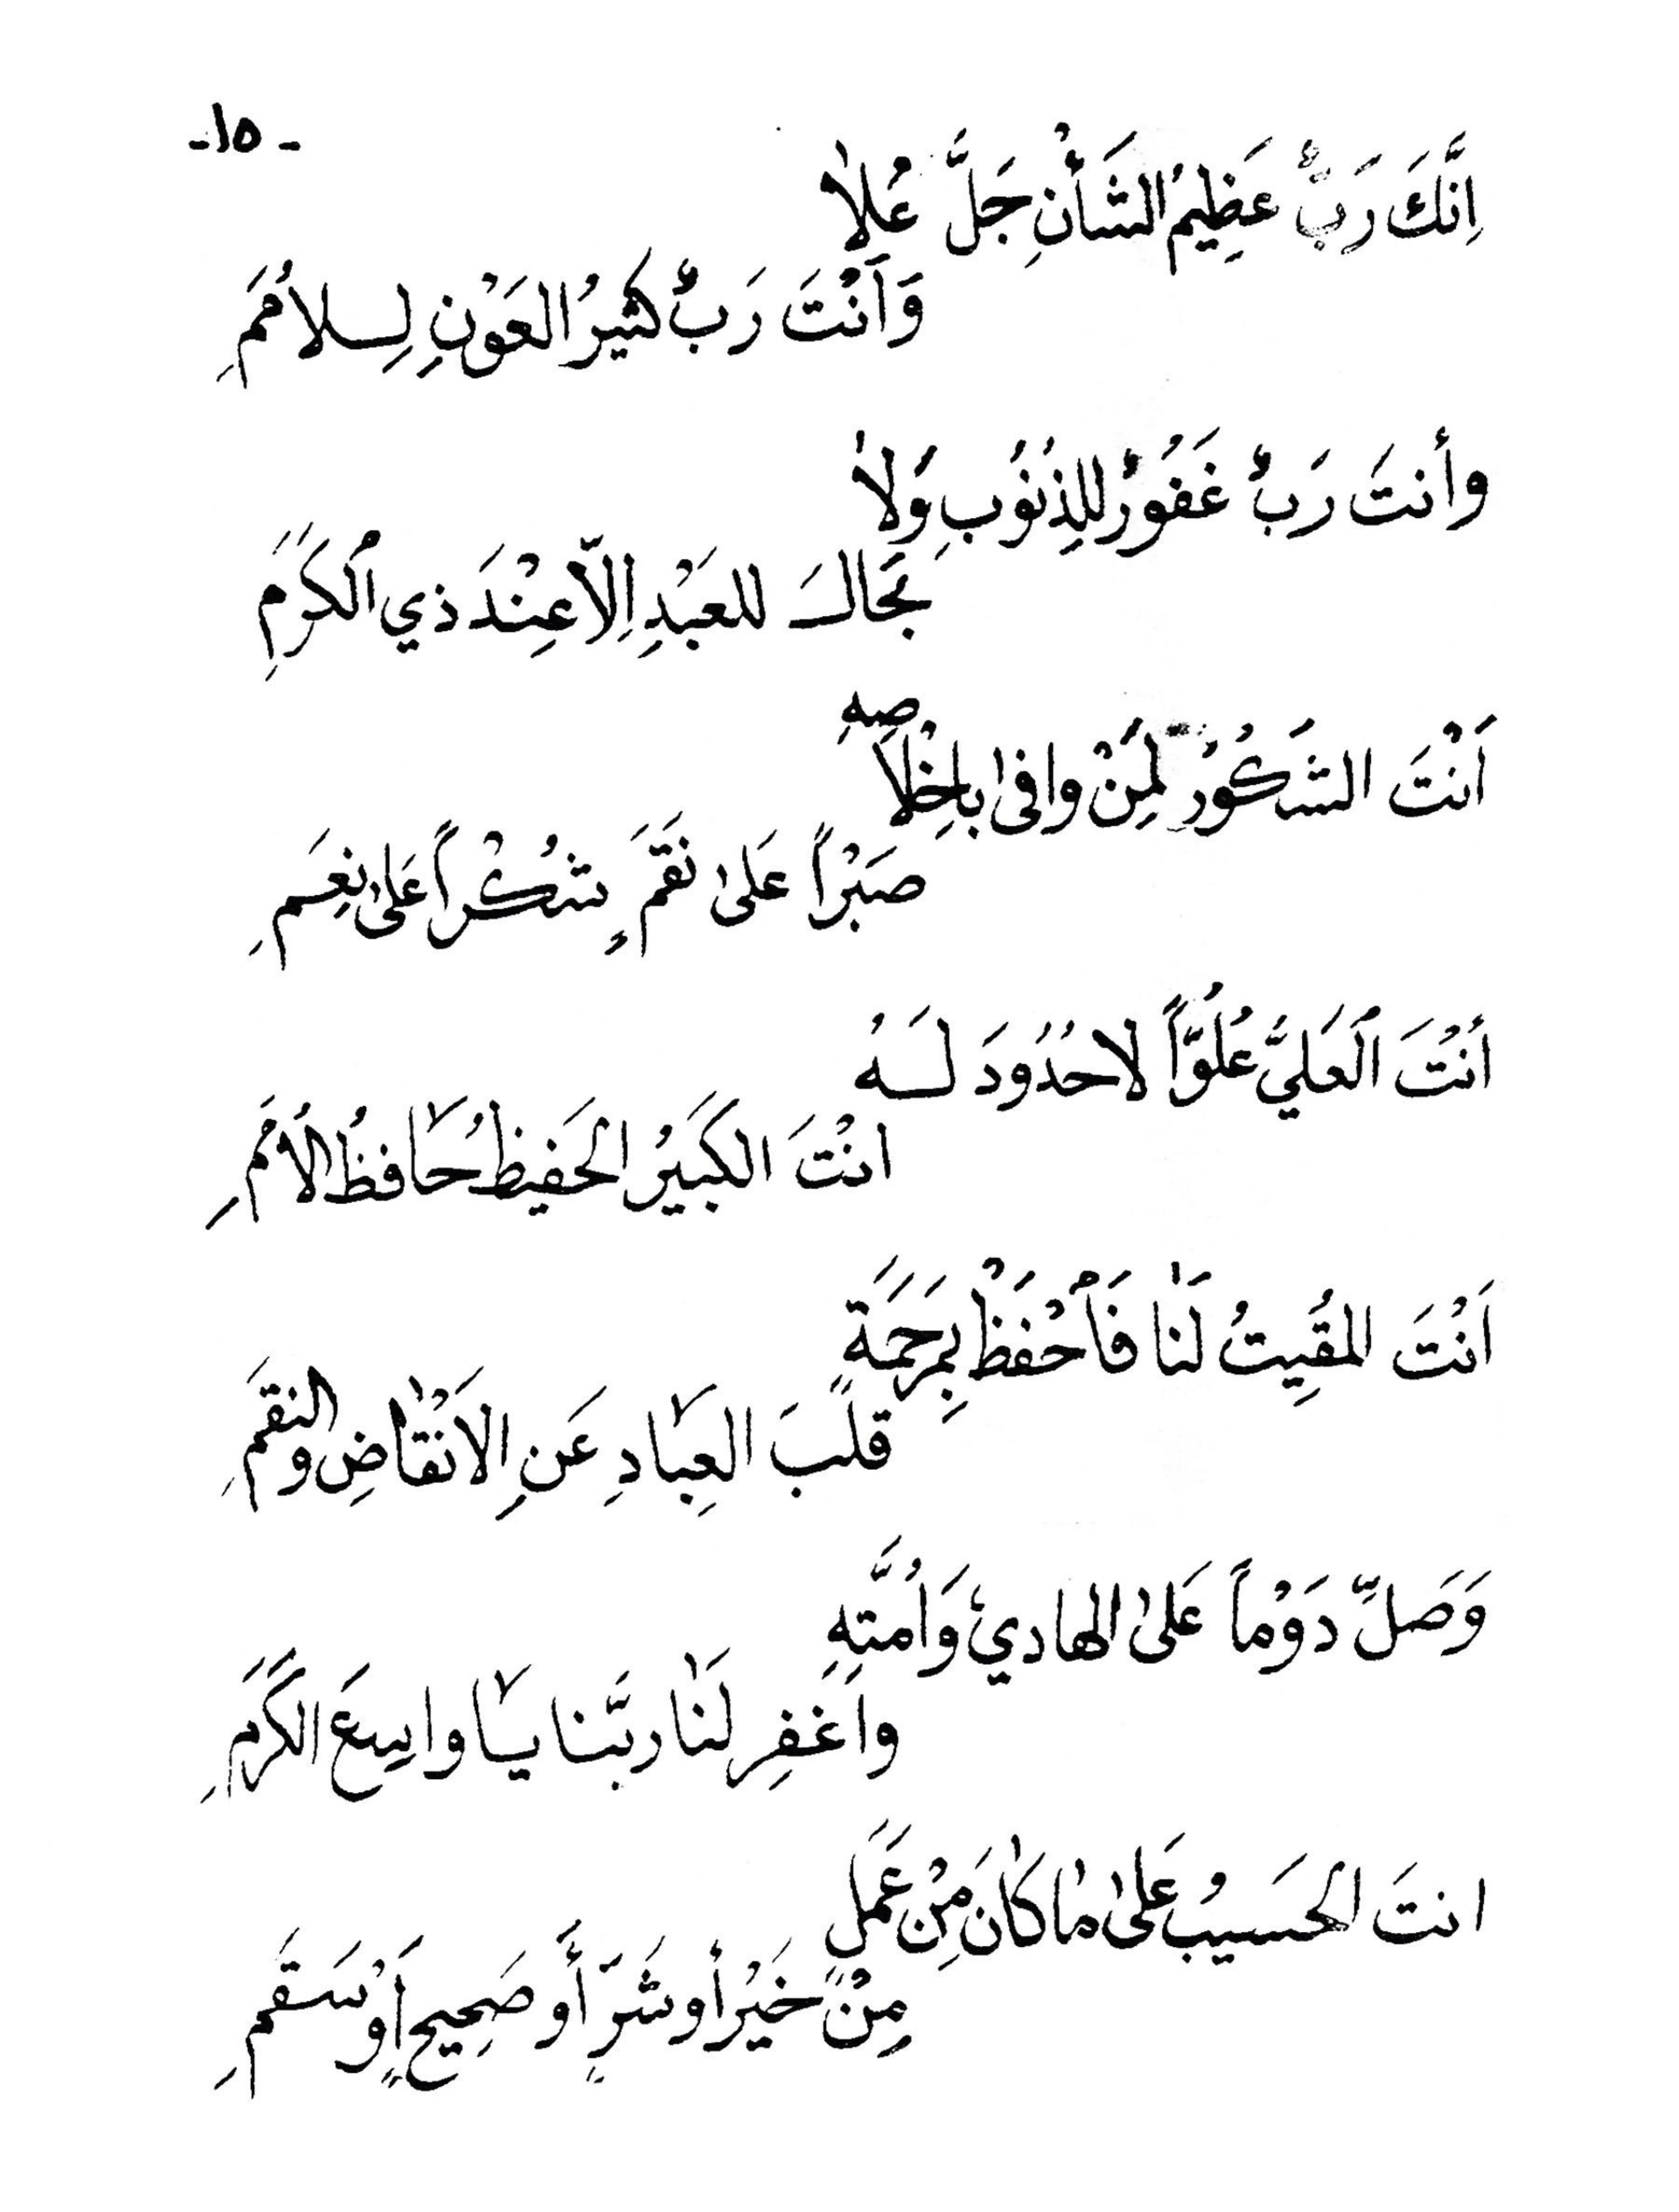 -١٥-
اِنَّكَ رَبٌّ عَظِيمُ الشَأْنِ جَلَّ عُلاٰ
وَاَنْتَ رَبٌ كثيرُ العَوْنِ لِلاُمَمِ
وأنتَ رَبٌ غَفُورٌ للِذنوُبِ وَلاٰ
نجَالَ للعَبْدِ اِلاّ عِنْدَ ذي اْلكَرَمِ
اَنْتَ الشَكُورُ لِمَنْ وافىٰ باِخِْلاَصِهِ
صَبْراً عَلىٰ نَقَمٍ شُكْراً عَلىٰ نِعَمِ
أنْتَ اْلعَليَّ عُلُوَّاً لاحدُوُدَ لَهُ
انْتَ الكبَيرُ الحَفيظُ حَافظُ الاُمَمِ
اَنْتَ المقُِيتُ لَنٰا فَاْحْفَظْ بِمرَحَمَةٍ
قلَبَ العِبَادِ عَنِ الاَنْقٰاضِ والنقَمِ
وَصَلِّ دَوْماً عَلىٰ الهاديْ وَاُمَّتِهِ
واَغفِر لَنٰا ربَّنا يَا واسِعَ الكَرَمِ
انتَ الحَسيبُ عَلىٰ مٰا كٰانَ مِنْ عَمَلٍ
مِنْ خَيْرٍ أو شَرٍّ أَو صَحِيحٍ اَوْ سَقَمِ